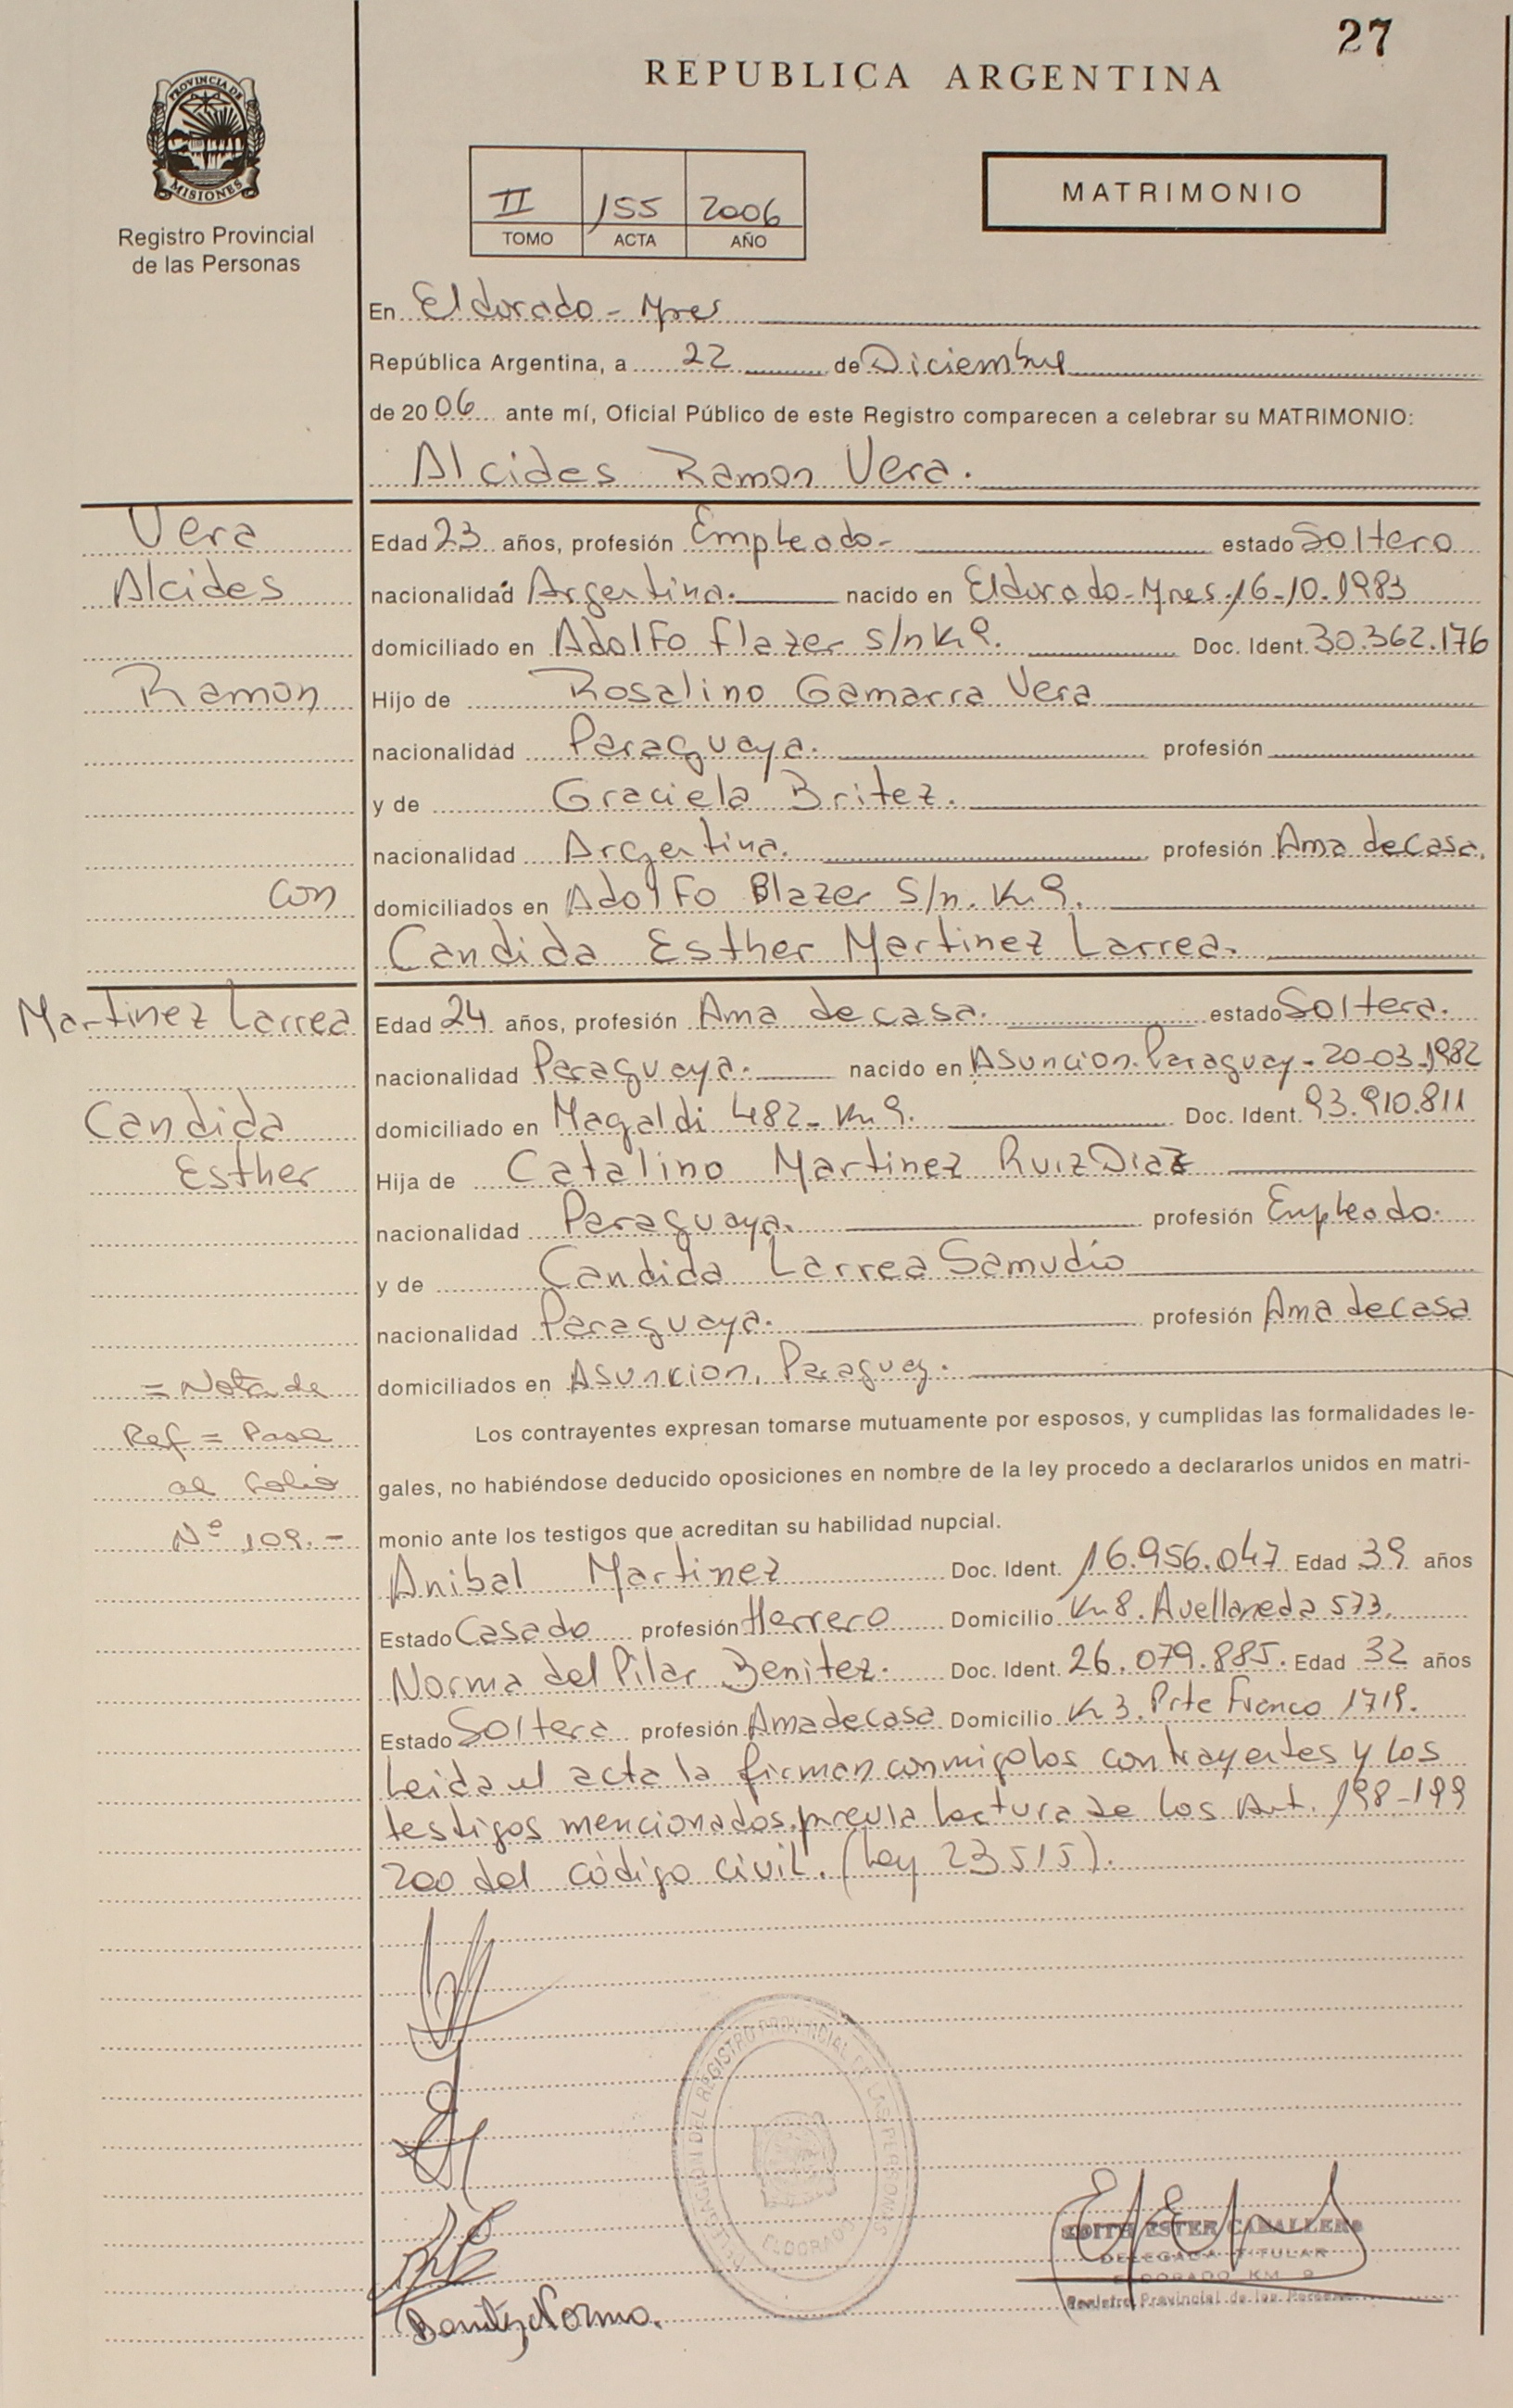 27
REPUBLICA ARGENTINA
PROVINCIA DE
MISIONES
Registro Provincial
de las Personas
II 155 2006
TOMO ACTA AÑO
MATRIMONIO
En Eldorado - Mnes
República Argentina, a 22 de Diciembre
de 2006 ante mí, Oficial Público de este Registro comparecen a celebrar su MATRIMONIO:
Alcides Ramon Vera.
Vera
Alcides
Ramon
con
Edad 23 años, profesión Empleado- estado Soltero
nacionalidad Argentina. nacido en Eldorado-Mnes. 16-10-1983
domiciliado en Adolfo flazer s/n Km 9. Doc. Ident. 30.362.176
Hijo de Rosalino Gamarra Vera
nacionalidad Paraguaya. profesión
y de Graciela Britez.
nacionalidad Argentina. profesión Ama de casa.
domiciliados en Adolfo Blazer S/n. Km 9.
Candida Esther Martinez Larrea.
Martinez Larrea
Candida
Esther
Edad 24 años, profesión Ama de casa. estado Soltera.
nacionalidad Paraguaya. nacido en Asuncion. Paraguay - 20-03-1982
domiciliado en Magaldi 482- Km 9. Doc. Ident. 93.910.811
Hija de Catalino Martinez Ruiz Diaz
nacionalidad Paraguaya. profesión Empleado.
y de Candida Larrea Samudio
nacionalidad Paraguaya. profesión Ama de casa
domiciliados en Asuncion, Paraguay.
= Nota de
Ref = Pasa
al folio
Nº 109.-
Los contrayentes expresan tomarse mutuamente por esposos, y cumplidas las formalidades le-
gales, no habiéndose deducido oposiciones en nombre de la ley procedo a declararlos unidos en matri-
monio ante los testigos que acreditan su habilidad nupcial.
Anibal Martinez Doc. Ident. 16.956.047 Edad 39 años
Estado Casado profesión Herrero Domicilio Km 8. Avellaneda 573.
Norma del Pilar Benitez. Doc. Ident. 26.079.885. Edad 32 años
Estado Soltera profesión Ama de casa Domicilio K 3. Prte Franco 1719.
Leida el acta la firman conmigo los contrayentes y los
testigos mencionados. previa lectura de los Art. 198-199
200 del código civil. (Ley 23515).
DELEGACION DEL REGISTRO PROVINCIAL DE LAS PERSONAS
ELDORADO
EDITH ESTER CABALLERO
DELEGADA TITULAR
ELDORADO KM 9
Registro Provincial de las Personas
Benitez Norma.